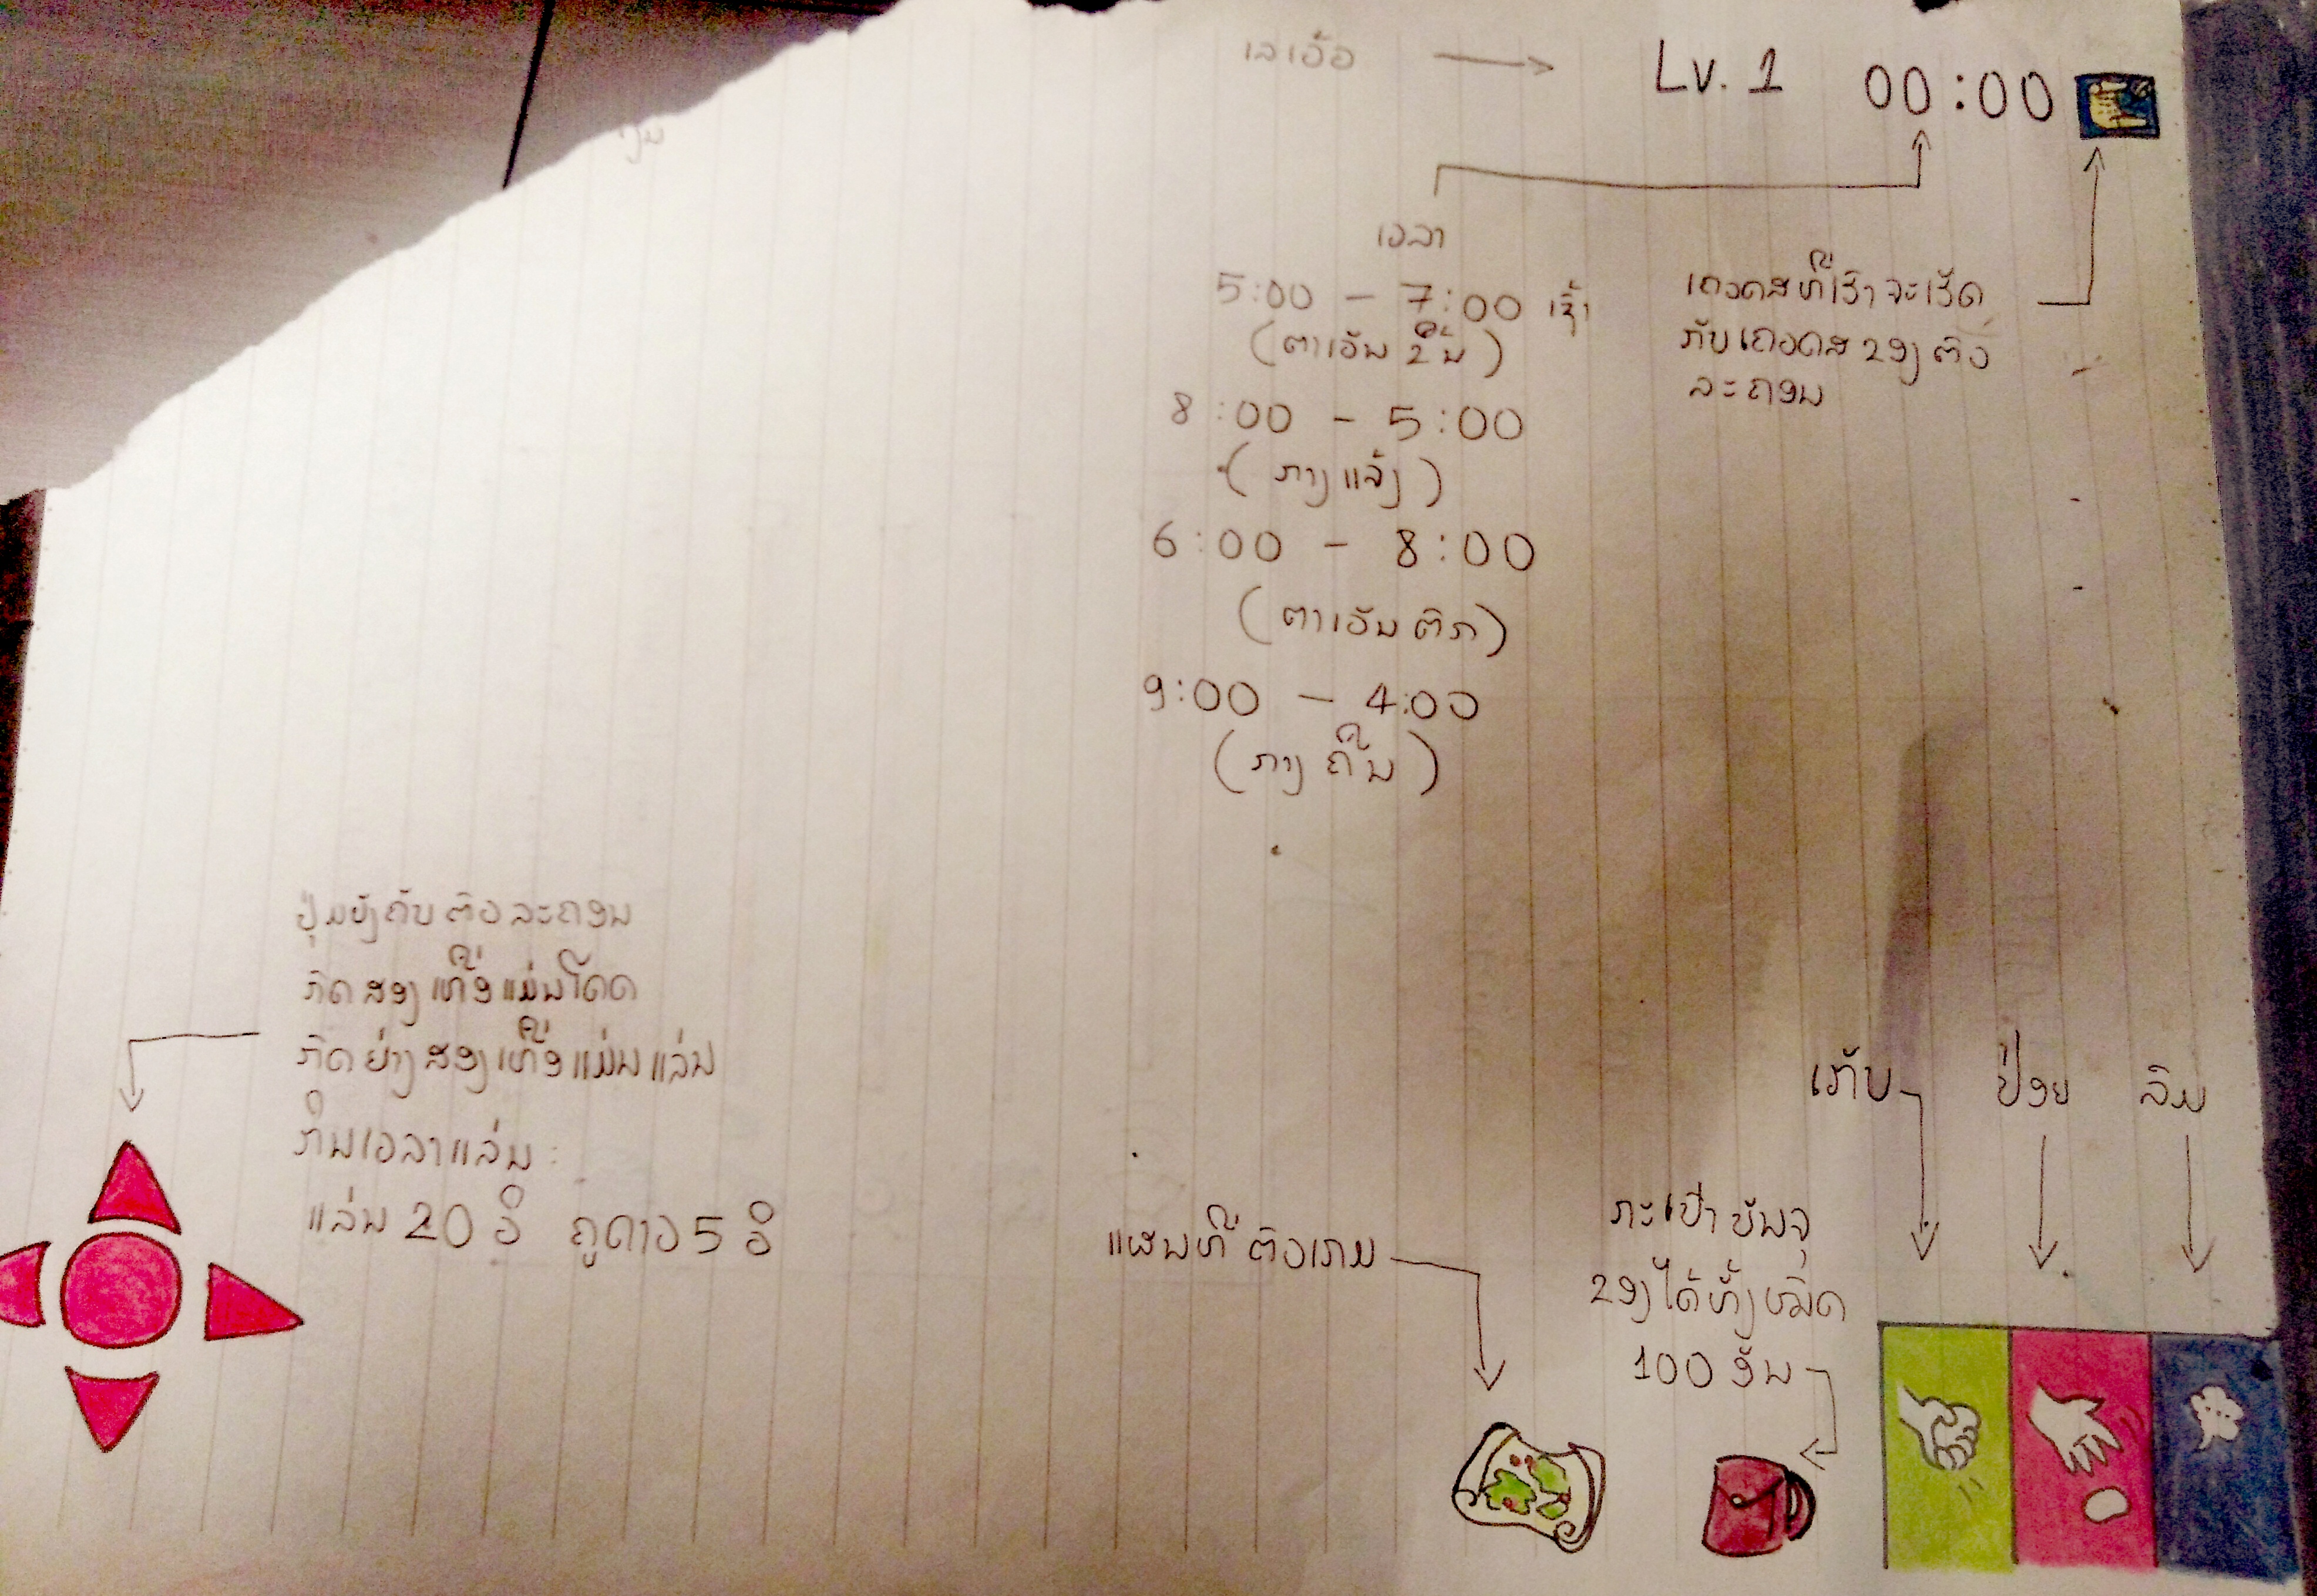 ເລເວ້ວ
Lv. 1
00:00
ເວລາ
5:00 - 7:00 ເຊົ້າ
(ຕາເວັນຂຶ້ນ)
8:00 - 5:00
(ກາງແລ້ງ)
6:00 - 8:00
(ຕາເວັນຕົກ)
9:00 - 4:00
(ກາງຄືນ)
ເຄວດສທີ່ເຮົາຈະເຮັດ
ກັບເຄວດສຂອງຕົວ
ລະຄອນ
ປຸ່ມບັງຄັບຕົວລະຄອນ
ກົດສອງເທື່ອແມ່ນໂດດ
ກົດຍ່າງສອງເທື່ອແມ່ນແລ່ນ
ກິນເວລາແລ່ນ:
ແລ່ນ 20 ວິ ຄູດາວ 5 ວິ
ແຜນທີ່ຕົວເກມ
ກະເປົາບັນຈຸ
ຂອງໄດ້ທັ້ງໝົດ
100 ອັນ
ເກັບ
ປ່ອຍ
ລົມ